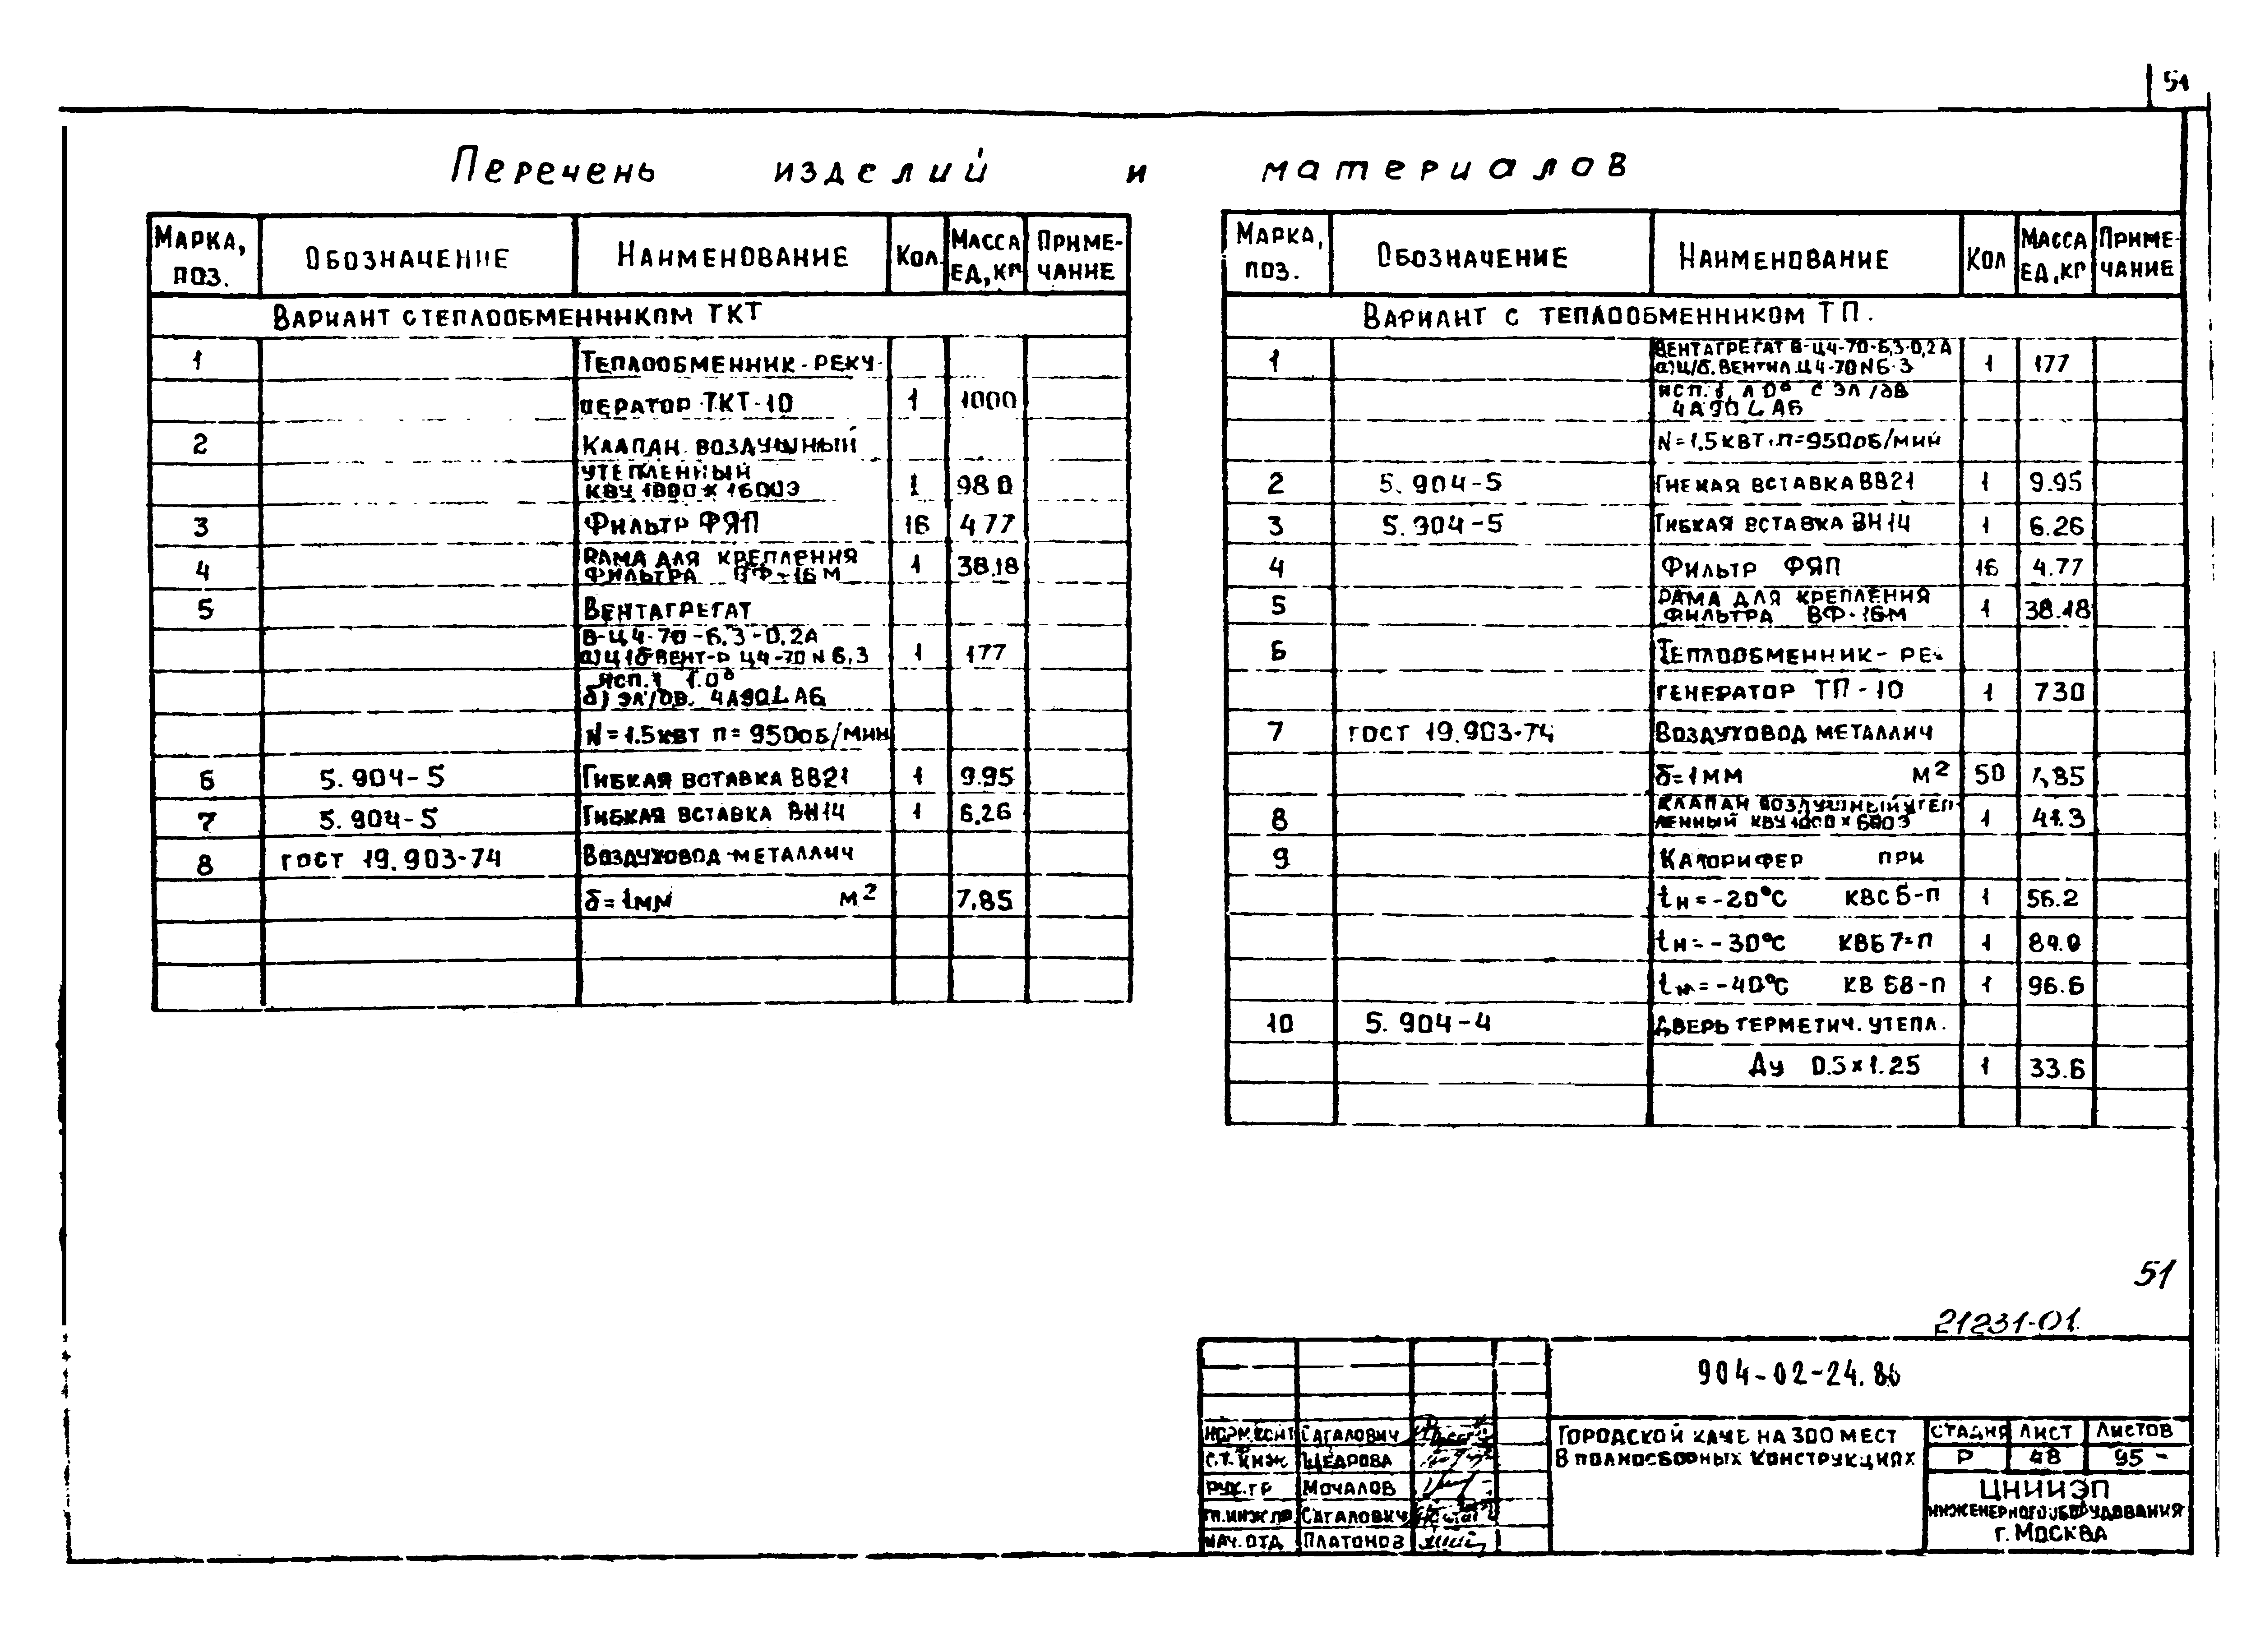 51
Перечень изделий и материалов
Марка, поз. Обозначение Наименование Кол. Масса ед,кг Приме-чание
Вариант с теплообменником ТКТ
1 Теплообменник-реку-
ператор ТКТ-10 1 1000
2 Клапан воздушный
утепленный
КВУ 1800х1600Э 1 98 0
3 Фильтр ФЯП 16 4 77
4 Рама для крепления
фильтра ВФ-16М 1 38.18
5 Вентагрегат
В-Ц4-70-6,3-0,2А
а) ц/б вент-р Ц4-70 N 6,3 1 177
исп.1 Л0°
б) эл/дв. 4А90LА6
N=1.5квт п=950об/мин
6 5.904-5 Гибкая вставка ВВ21 1 9.95
7 5.904-5 Гибкая вставка ВН14 1 6.26
8 гост 19.903-74 Воздуховод металлич
δ=1мм м² 7.85
Марка, поз. Обозначение Наименование Кол Масса ед,кг Приме-чание
Вариант с теплообменником ТП.
1 Вентагрегат В-Ц4-70-6,3-0,2А
а) ц/б. вентил. Ц4-70 N6.3 1 177
исп.1, Л0° с эл/дв
4А90LА6
N=1,5квт, п=950об/мин
2 5.904-5 Гибкая вставка ВВ21 1 9.95
3 5.904-5 Гибкая вставка ВН14 1 6.26
4 Фильтр ФЯП 16 4.77
5 Рама для крепления
фильтра ВФ-16М 1 38.18
6 Теплообменник-ре-
генератор ТП-10 1 730
7 гост 19.903-74 Воздуховод металлич
δ=1мм м² 50 7,85
8 Клапан воздушный утеп-
ленный КВУ 1000х600Э 1 41.3
9 Калорифер при
tн=-20°С КВС6-п 1 56.2
tн=-30°С КВБ7-п 1 84.0
tн=-40°С КВБ8-п 1 96.6
10 5.904-4 Дверь герметич. утепл.
Ду 0.5х1.25 1 33.6
51
21231-01
904-02-24.86
Норм.конт Сагалович
Ст.инж Щедрова
Рук.гр Мочалов
Гл.инж.пр Сагалович
Нач.отд Платонов
Городской каче на 300 мест
в полносборных конструкциях
Стадия Лист Листов
Р 48 95 -
ЦНИИЭП
инженерного оборудования
г. Москва